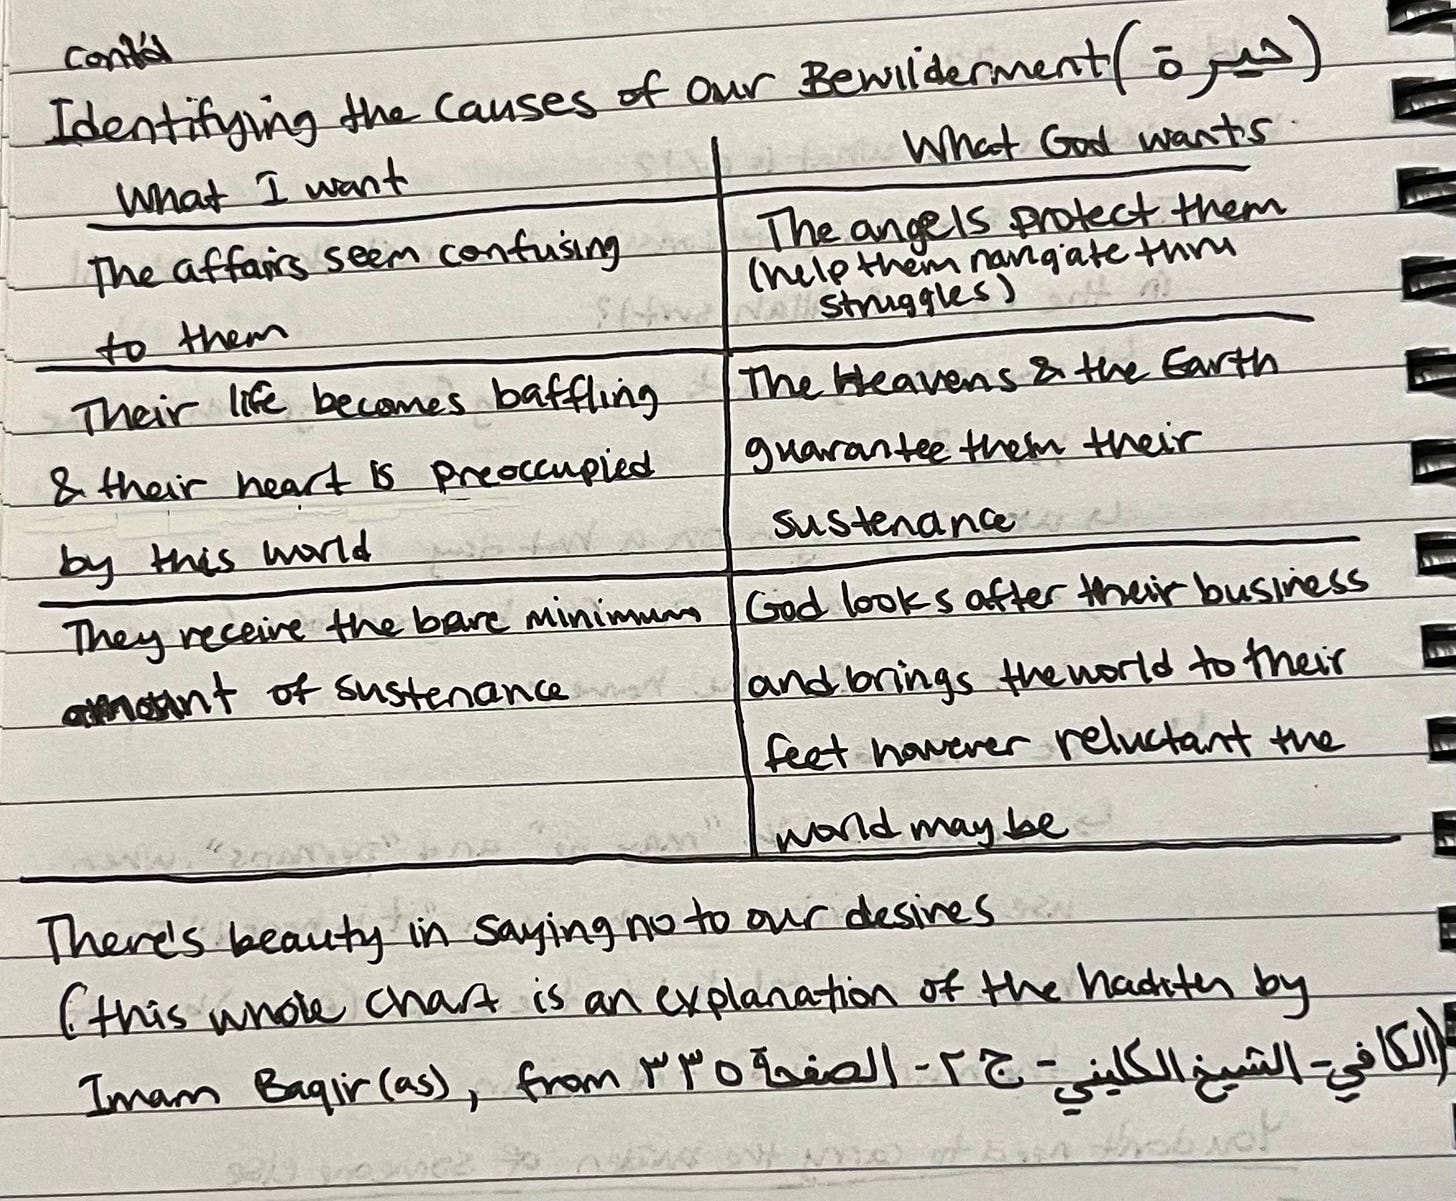 cont'd
Identifying the causes of our Bewilderment (حيرة)
What I want
What God wants
The affairs seem confusing
to them
The angels protect them
(help them navigate thru
struggles)
Their life becomes baffling
& their heart is preoccupied
by this world
The Heavens & the Earth
guarantee them their
sustenance
They receive the bare minimum
amount of sustenance
God looks after their business
and brings the world to their
feet however reluctant the
world may be
There's beauty in saying no to our desires
(this whole chart is an explanation of the hadith by
Imam Baqir (as), from الكافي - الشيخ الكليني - ج ٢ - الصفحة ٣٣٥)